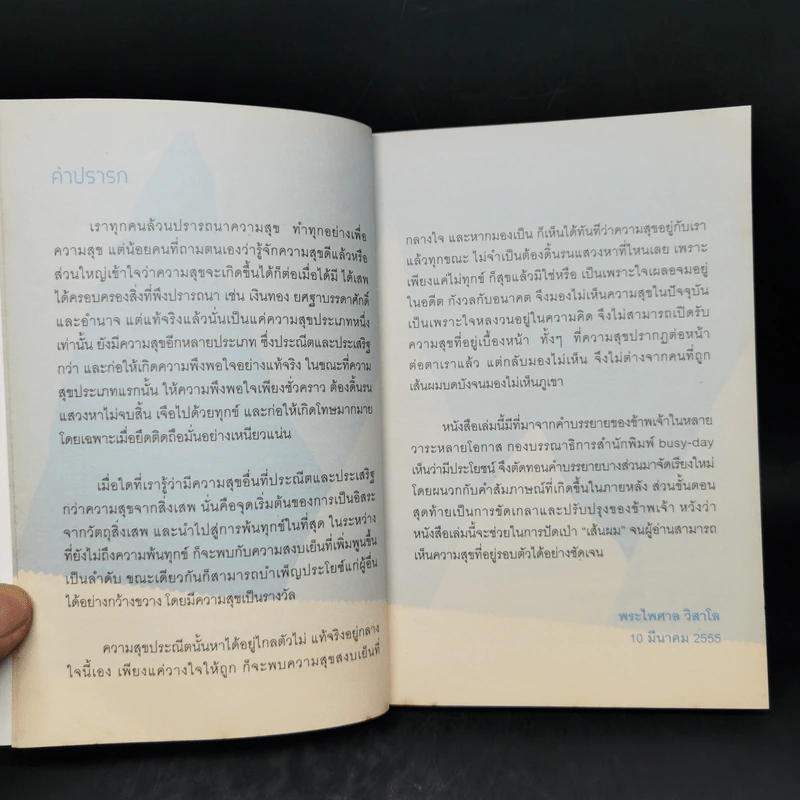 คำปรารภ
เราทุกคนล้วนปรารถนาความสุข ทำทุกอย่างเพื่อ
ความสุข แต่น้อยคนที่ถามตนเองว่ารู้จักความสุขดีแล้วหรือ
ส่วนใหญ่เข้าใจว่าความสุขจะเกิดขึ้นได้ก็ต่อเมื่อได้มี ได้เสพ
ได้ครอบครองสิ่งที่พึงปรารถนา เช่น เงินทอง ยศฐาบรรดาศักดิ์
และอำนาจ แต่แท้จริงแล้วนั่นเป็นแค่ความสุขประเภทหนึ่ง
เท่านั้น ยังมีความสุขอีกหลายประเภท ซึ่งประณีตและประเสริฐ
กว่า และก่อให้เกิดความพึงพอใจอย่างแท้จริง ในขณะที่ความ
สุขประเภทแรกนั้น ให้ความพึงพอใจเพียงชั่วคราว ต้องดิ้นรน
แสวงหาไม่จบสิ้น เจือไปด้วยทุกข์ และก่อให้เกิดโทษมากมาย
โดยเฉพาะเมื่อยึดติดถือมั่นอย่างเหนียวแน่น
เมื่อใดที่เรารู้ว่ามีความสุขอื่นที่ประณีตและประเสริฐ
กว่าความสุขจากสิ่งเสพ นั่นคือจุดเริ่มต้นของการเป็นอิสระ
จากวัตถุสิ่งเสพ และนำไปสู่การพ้นทุกข์ในที่สุด ในระหว่าง
ที่ยังไม่ถึงความพ้นทุกข์ ก็จะพบกับความสงบเย็นที่เพิ่มพูนขึ้น
เป็นลำดับ ขณะเดียวกันก็สามารถบำเพ็ญประโยชน์แก่ผู้อื่น
ได้อย่างกว้างขวาง โดยมีความสุขเป็นรางวัล
ความสุขประณีตนั้นหาได้อยู่ไกลตัวไม่ แท้จริงอยู่กลาง
ใจนี้เอง เพียงแค่วางใจให้ถูก ก็จะพบความสุขสงบเย็นที่
กลางใจ และหากมองเป็น ก็เห็นได้ทันทีว่าความสุขอยู่กับเรา
แล้วทุกขณะ ไม่จำเป็นต้องดิ้นรนแสวงหาที่ไหนเลย เพราะ
เพียงแค่ไม่ทุกข์ ก็สุขแล้วมิใช่หรือ เป็นเพราะใจเผลอจมอยู่
ในอดีต กังวลกับอนาคต จึงมองไม่เห็นความสุขในปัจจุบัน
เป็นเพราะใจหลงวนอยู่ในความคิด จึงไม่สามารถเปิดรับ
ความสุขที่อยู่เบื้องหน้า ทั้งๆ ที่ความสุขปรากฏต่อหน้า
ต่อตาเราแล้ว แต่กลับมองไม่เห็น จึงไม่ต่างจากคนที่ถูก
เส้นผมบดบังจนมองไม่เห็นภูเขา
หนังสือเล่มนี้มีที่มาจากคำบรรยายของข้าพเจ้าในหลาย
วาระหลายโอกาส กองบรรณาธิการสำนักพิมพ์ busy-day
เห็นว่ามีประโยชน์ จึงตัดทอนคำบรรยายบางส่วนมาจัดเรียงใหม่
โดยผนวกกับคำสัมภาษณ์ที่เกิดขึ้นในภายหลัง ส่วนขั้นตอน
สุดท้ายเป็นการขัดเกลาและปรับปรุงของข้าพเจ้า หวังว่า
หนังสือเล่มนี้จะช่วยในการปัดเป่า “เส้นผม” จนผู้อ่านสามารถ
เห็นความสุขที่อยู่รอบตัวได้อย่างชัดเจน
พระไพศาล วิสาโล
10 มีนาคม 2555